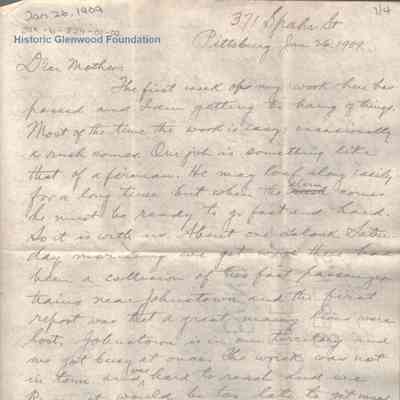 Jan 26, 1909
1/4
Historic Glenwood Foundation
371 Spahr St
Pittsburg Jan 26, 1909.
Dear Mother:
The first week of my work here has
passed and I am getting the hang of things.
Most of the time the work is easy; occasionally
a rush comes. Our job is something like
that of a fireman. He may loaf along easily
for a long time but when the alarm comes
he must be ready to go fast and hard.
So it is with us. About one o'clock Satur
day morning we got word there had
been a collision of two fast passenger
trains near Johnstown and the first
report was that a great many lives were
lost. Johnstown is in our territory and
we got busy at once. The wreck was not
in town and was hard to reach and we
it would be too late to get